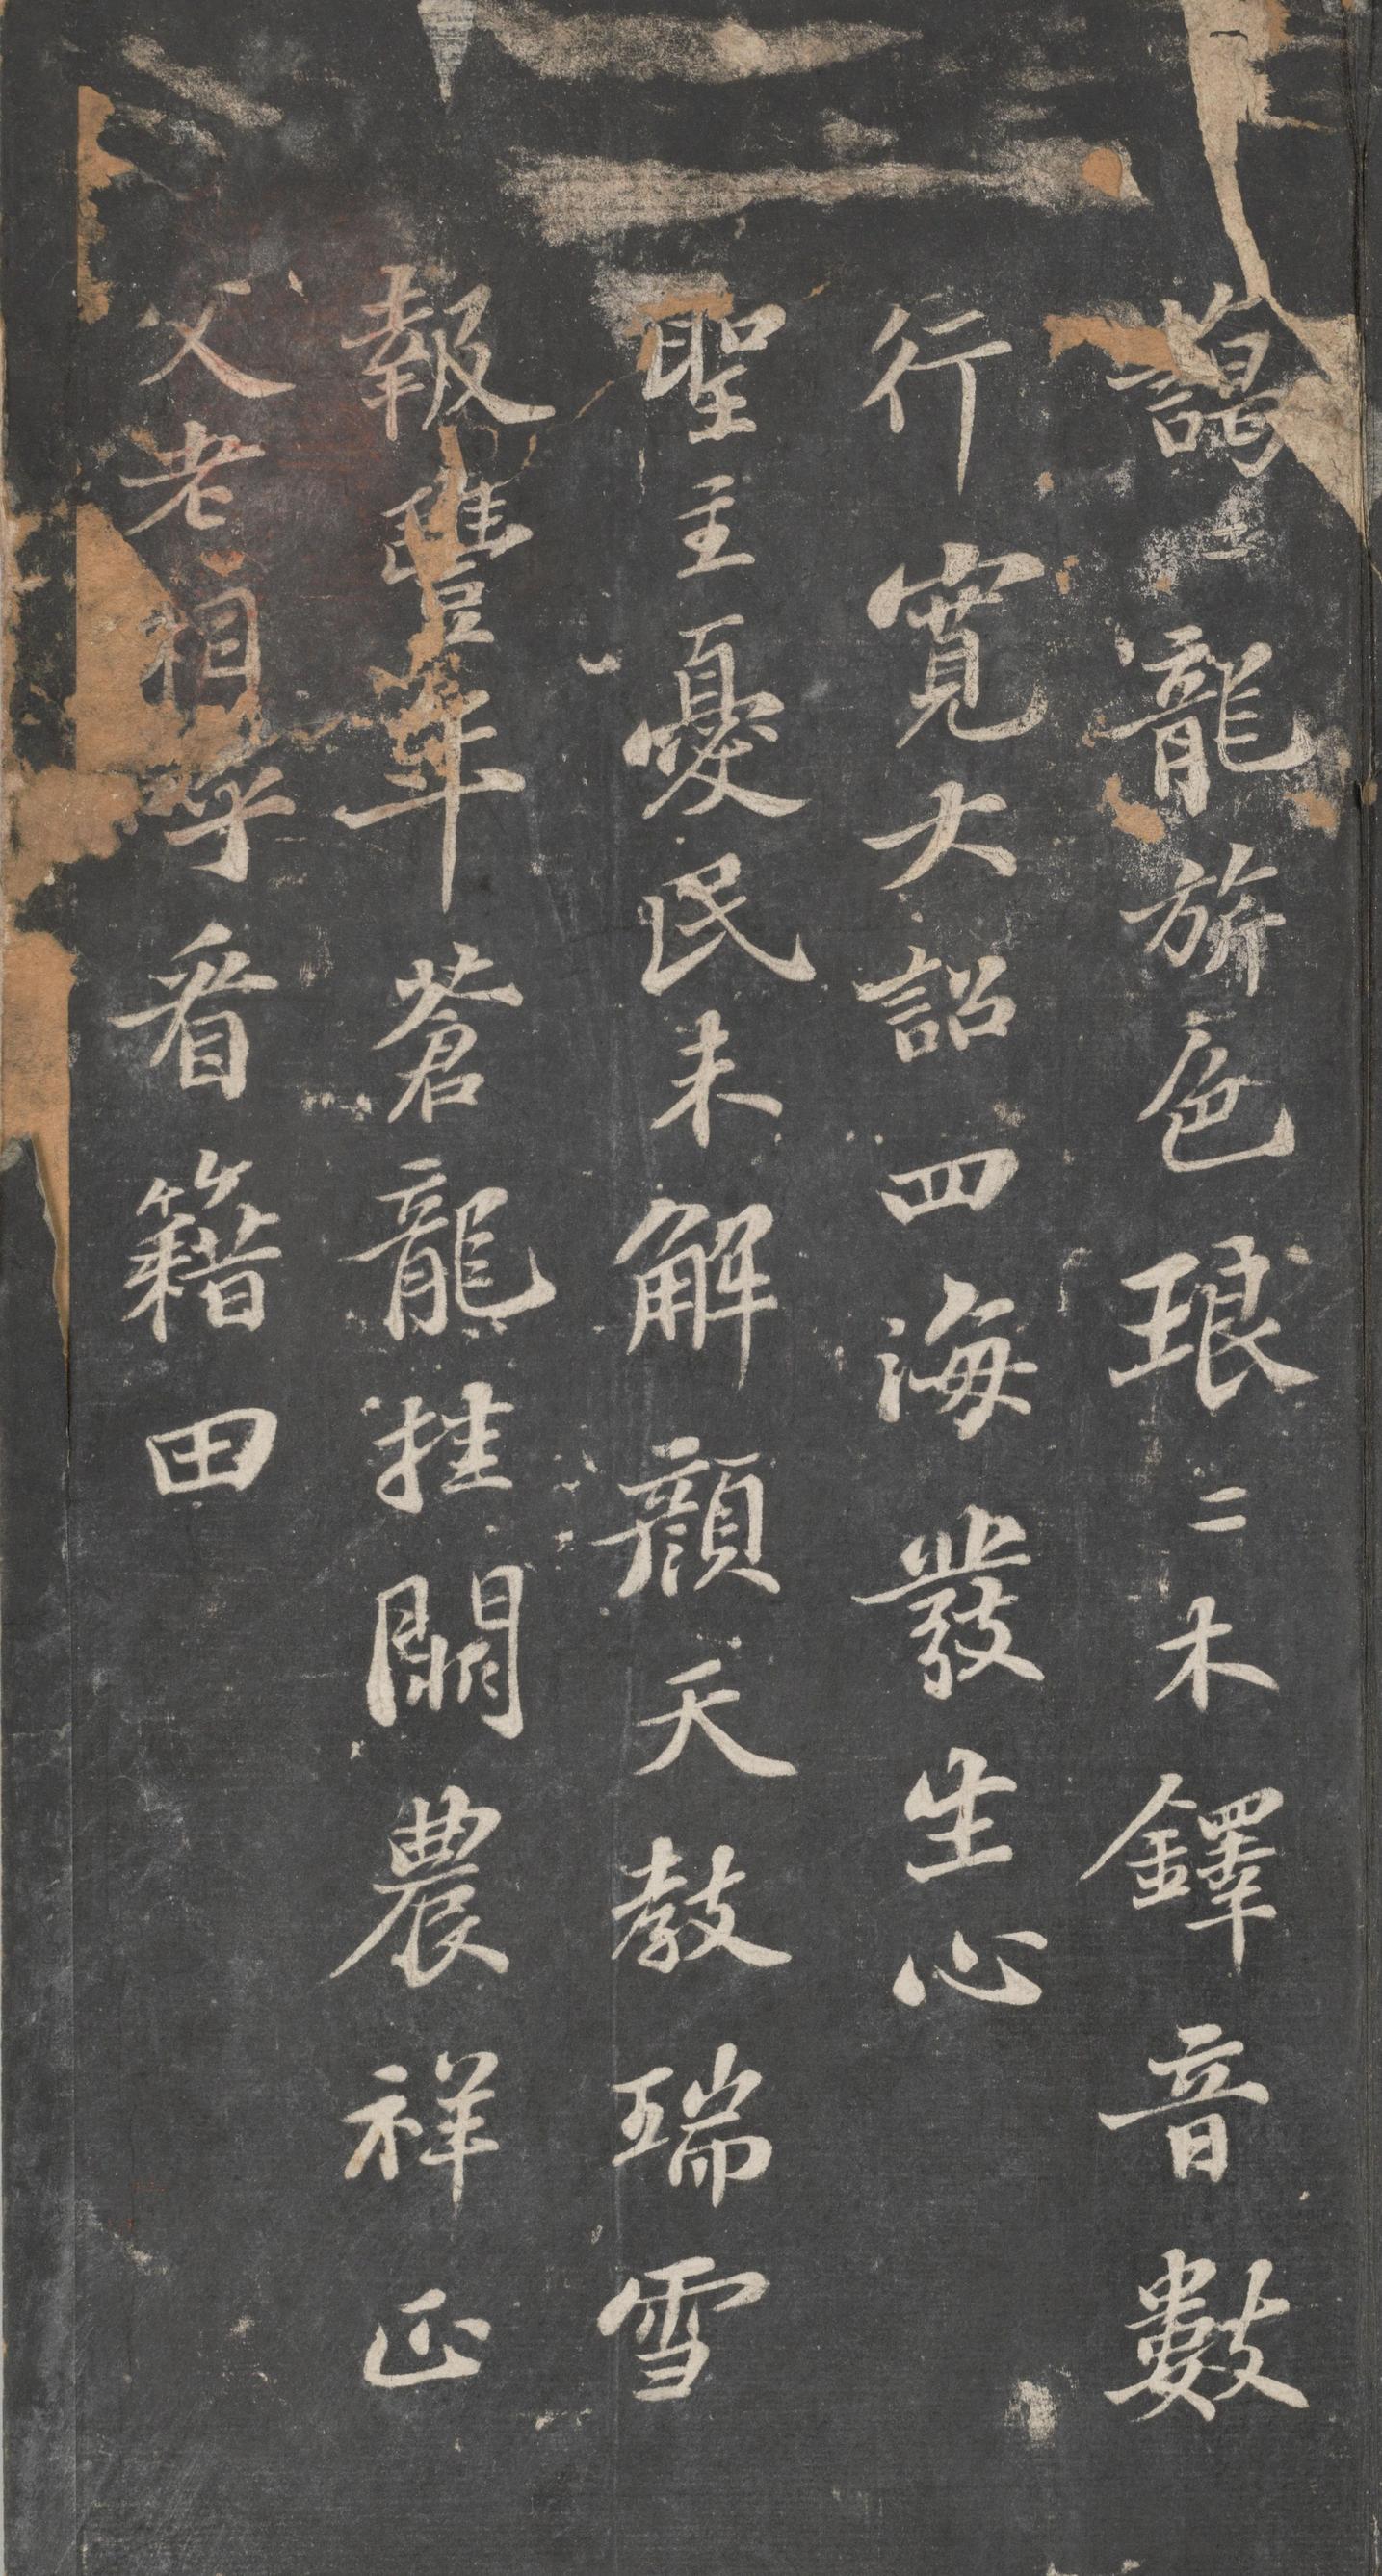 藹二龍旂色琅二木鐸音數
行寬大詔四海發生心
聖主憂民未解顏天教瑞雪
報豐年蒼龍挂闕農祥正
父老相呼看籍田